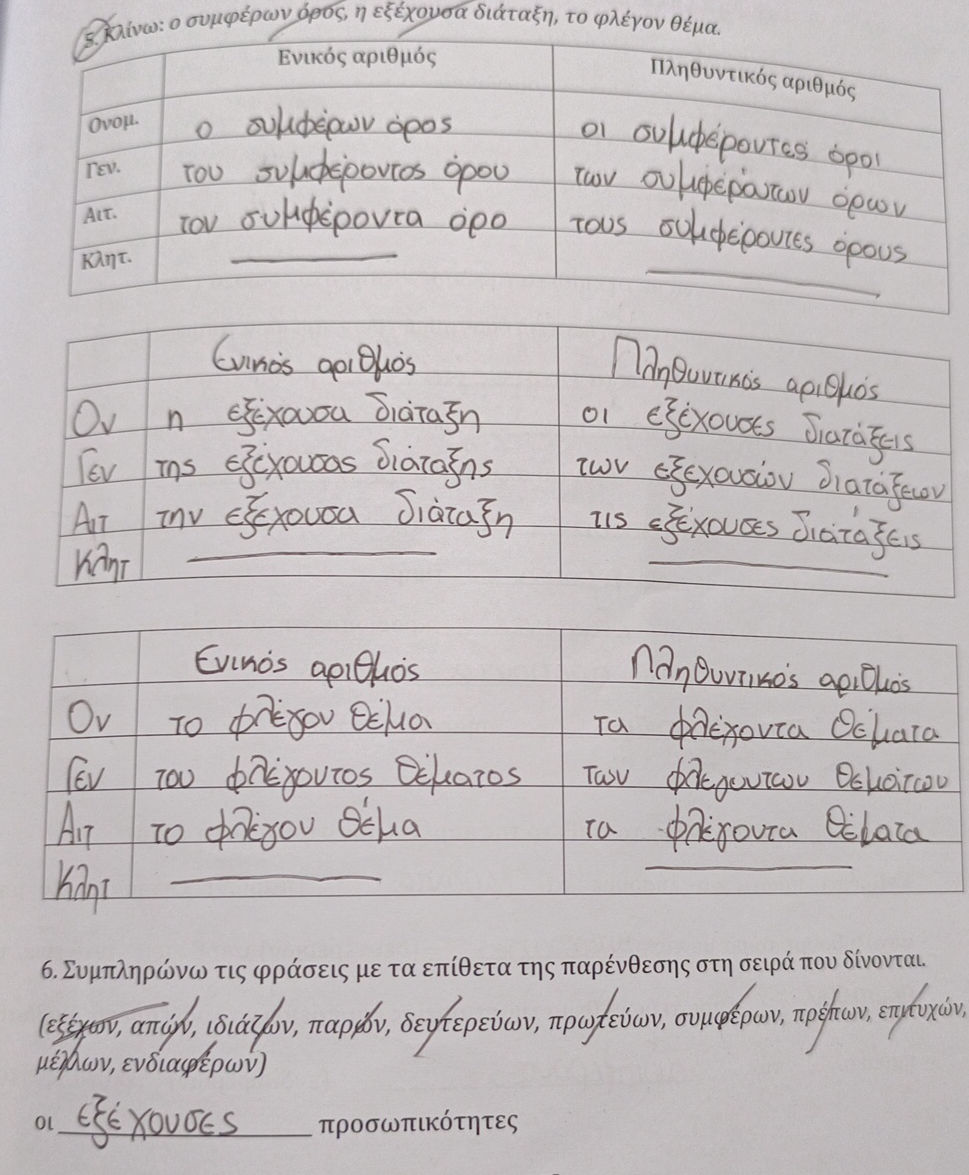 5. Κλίνω: ο συμφέρων όρος, η εξέχουσα διάταξη, το φλέγον θέμα.
Ενικός αριθμός Πληθυντικός αριθμός
Ονομ. ο συμφέρων όρος οι συμφέροντες όροι
Γεν. του συμφέροντος όρου των συμφερόντων όρων
Αιτ. τον συμφέροντα όρο τους συμφέροντες όρους
Κλητ.
Ενικός αριθμός Πληθυντικός αριθμός
Ον η εξέχουσα διάταξη οι εξέχουσες διατάξεις
Γεν της εξέχουσας διάταξης των εξεχουσών διατάξεων
Αιτ την εξέχουσα διάταξη τις εξέχουσες διατάξεις
Κλητ
Ενικός αριθμός Πληθυντικός αριθμός
Ον το φλέγον θέμα τα φλέγοντα θέματα
Γεν του φλέγοντος θέματος των φλεγοντων θεμάτων
Αιτ το φλέγον θέμα τα φλέγοντα θέματα
Κλητ
6. Συμπληρώνω τις φράσεις με τα επίθετα της παρένθεσης στη σειρά που δίνονται.
(εξέχων, απών, ιδιάζων, παρών, δευτερεύων, πρωτεύων, συμφέρων, πρέπων, επιτυχών,
μέλλων, ενδιαφέρων)
οι εξέχουσες προσωπικότητες